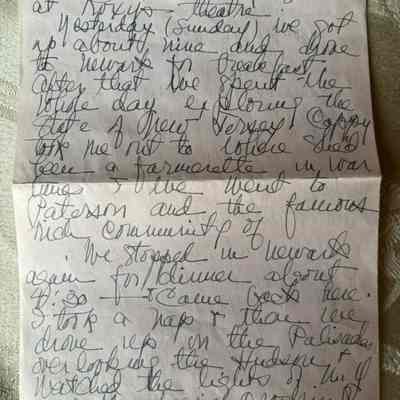 at Roxy's theatre
Yesterday (Sunday) we got
up about nine and drove
to Newark for breakfast
after that we spent the
whole day exploring the
State of New Jersey. Cappy
took me out to where she'd
been a farmerette in war
times & we went to
Paterson and the famous
rich community of
We stopped in Newark
again for dinner about
4:30 & came back here.
I took a nap & then we
drove up on the Palisades
overlooking the Hudson &
watched the lights of N.Y.